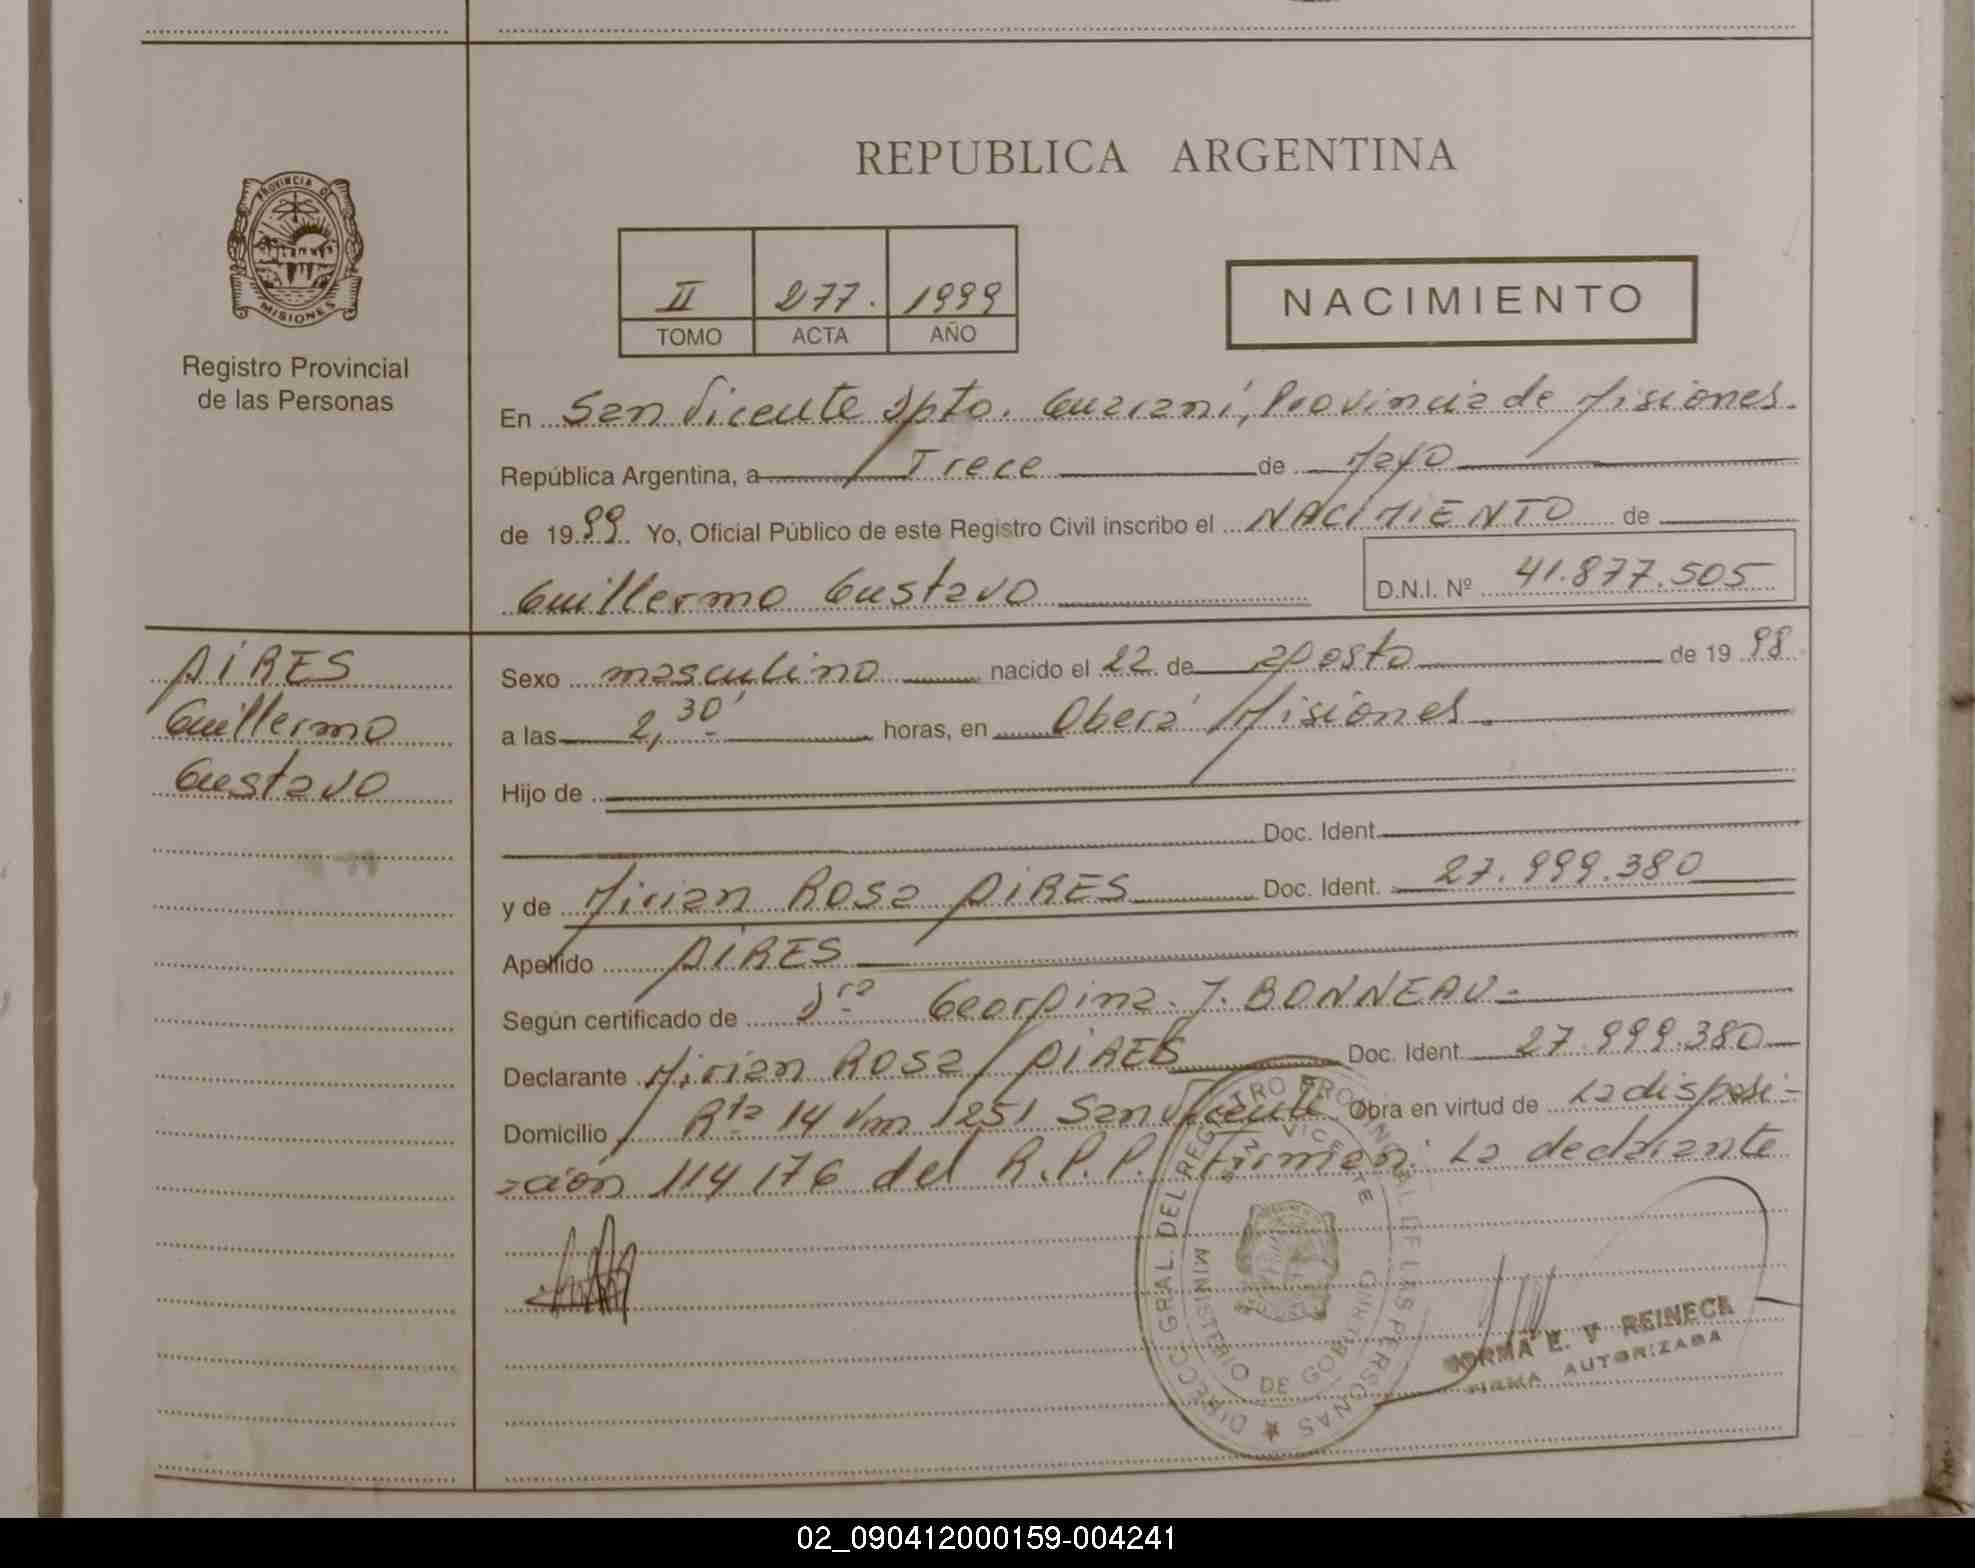 REPUBLICA ARGENTINA
PROVINCIA DE
MISIONES
Registro Provincial
de las Personas
II 277. 1999
TOMO ACTA AÑO
NACIMIENTO
En San Vicente Dpto. Guaraní, Provincia de Misiones.
República Argentina, a Trece de Mayo
de 1999. Yo, Oficial Público de este Registro Civil inscribo el NACIMIENTO de
Guillermo Gustavo D.N.I. Nº 41.877.505
PIRES
Guillermo
Gustavo
Sexo masculino nacido el 22 de agosto de 1998
a las 2,30' horas, en Oberá Misiones.
Hijo de
Doc. Ident.
y de Mirian Rosa PIRES Doc. Ident. 27.999.380
Apellido PIRES
Según certificado de Dra Georgina J. BONNEAU.-
Declarante Mirian Rosa PIRES Doc. Ident. 27.999.380
Domicilio Rta 14 Km 1251 San Vicente Obra en virtud de La disposi-
ción 114/76 del R.P.P. Firman: La declarante
DIRECC. GRAL. DEL REGISTRO PROVINCIAL DE LAS PERSONAS
SAN VICENTE
MINISTERIO DE GOBIERNO
NORMA E. V. REINECK
FIRMA AUTORIZADA
02_090412000159-004241